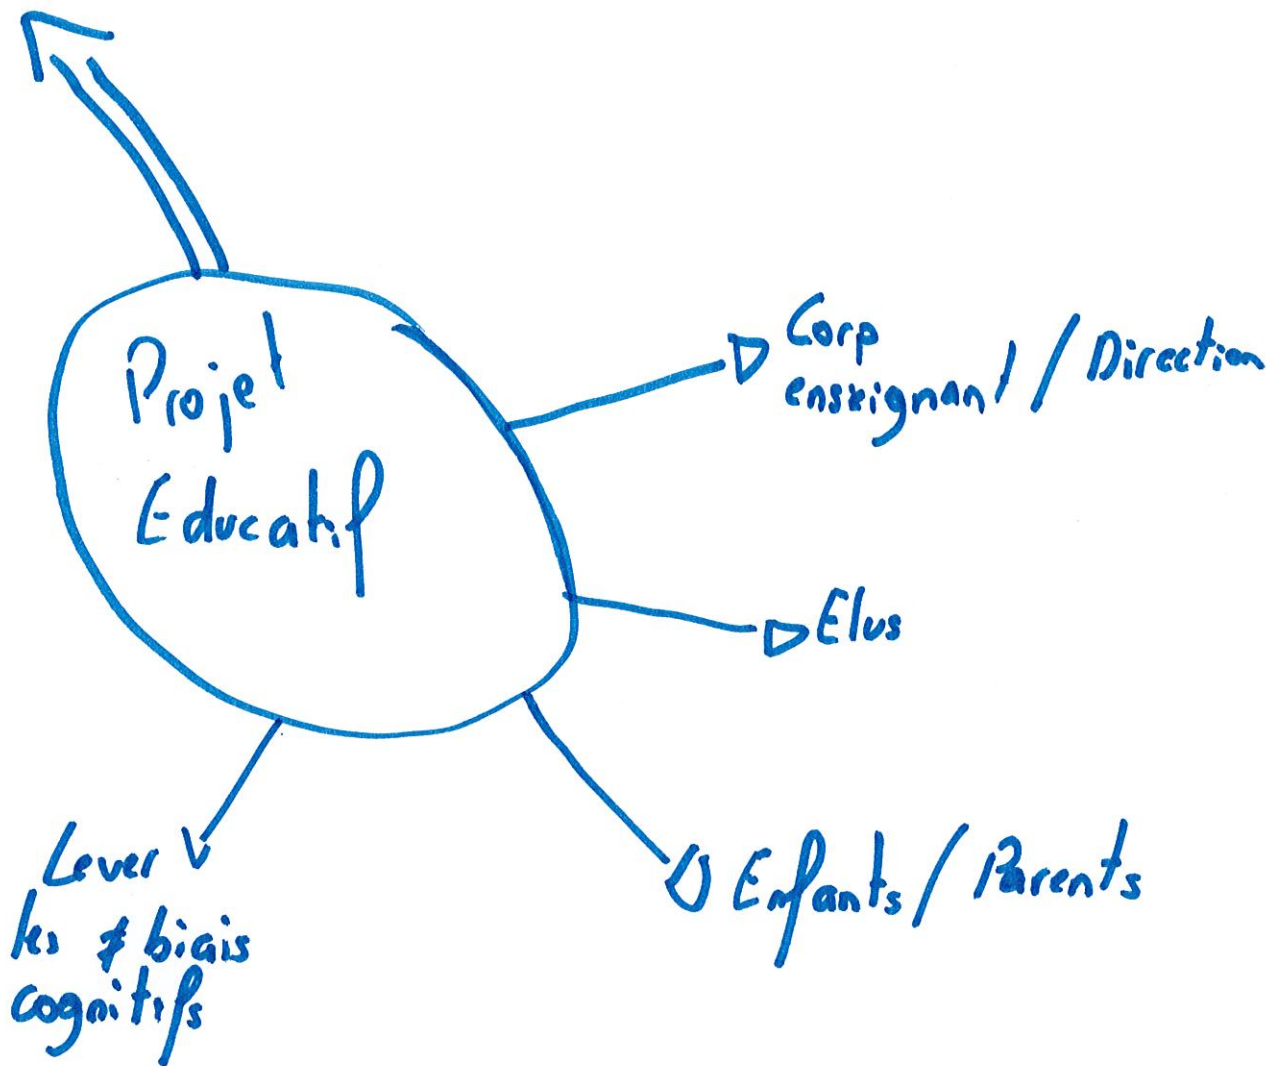 Projet
Educatif
Corp
enseignant / Direction
Elus
Enfants / Parents
Lever
les ≠ biais
cognitifs